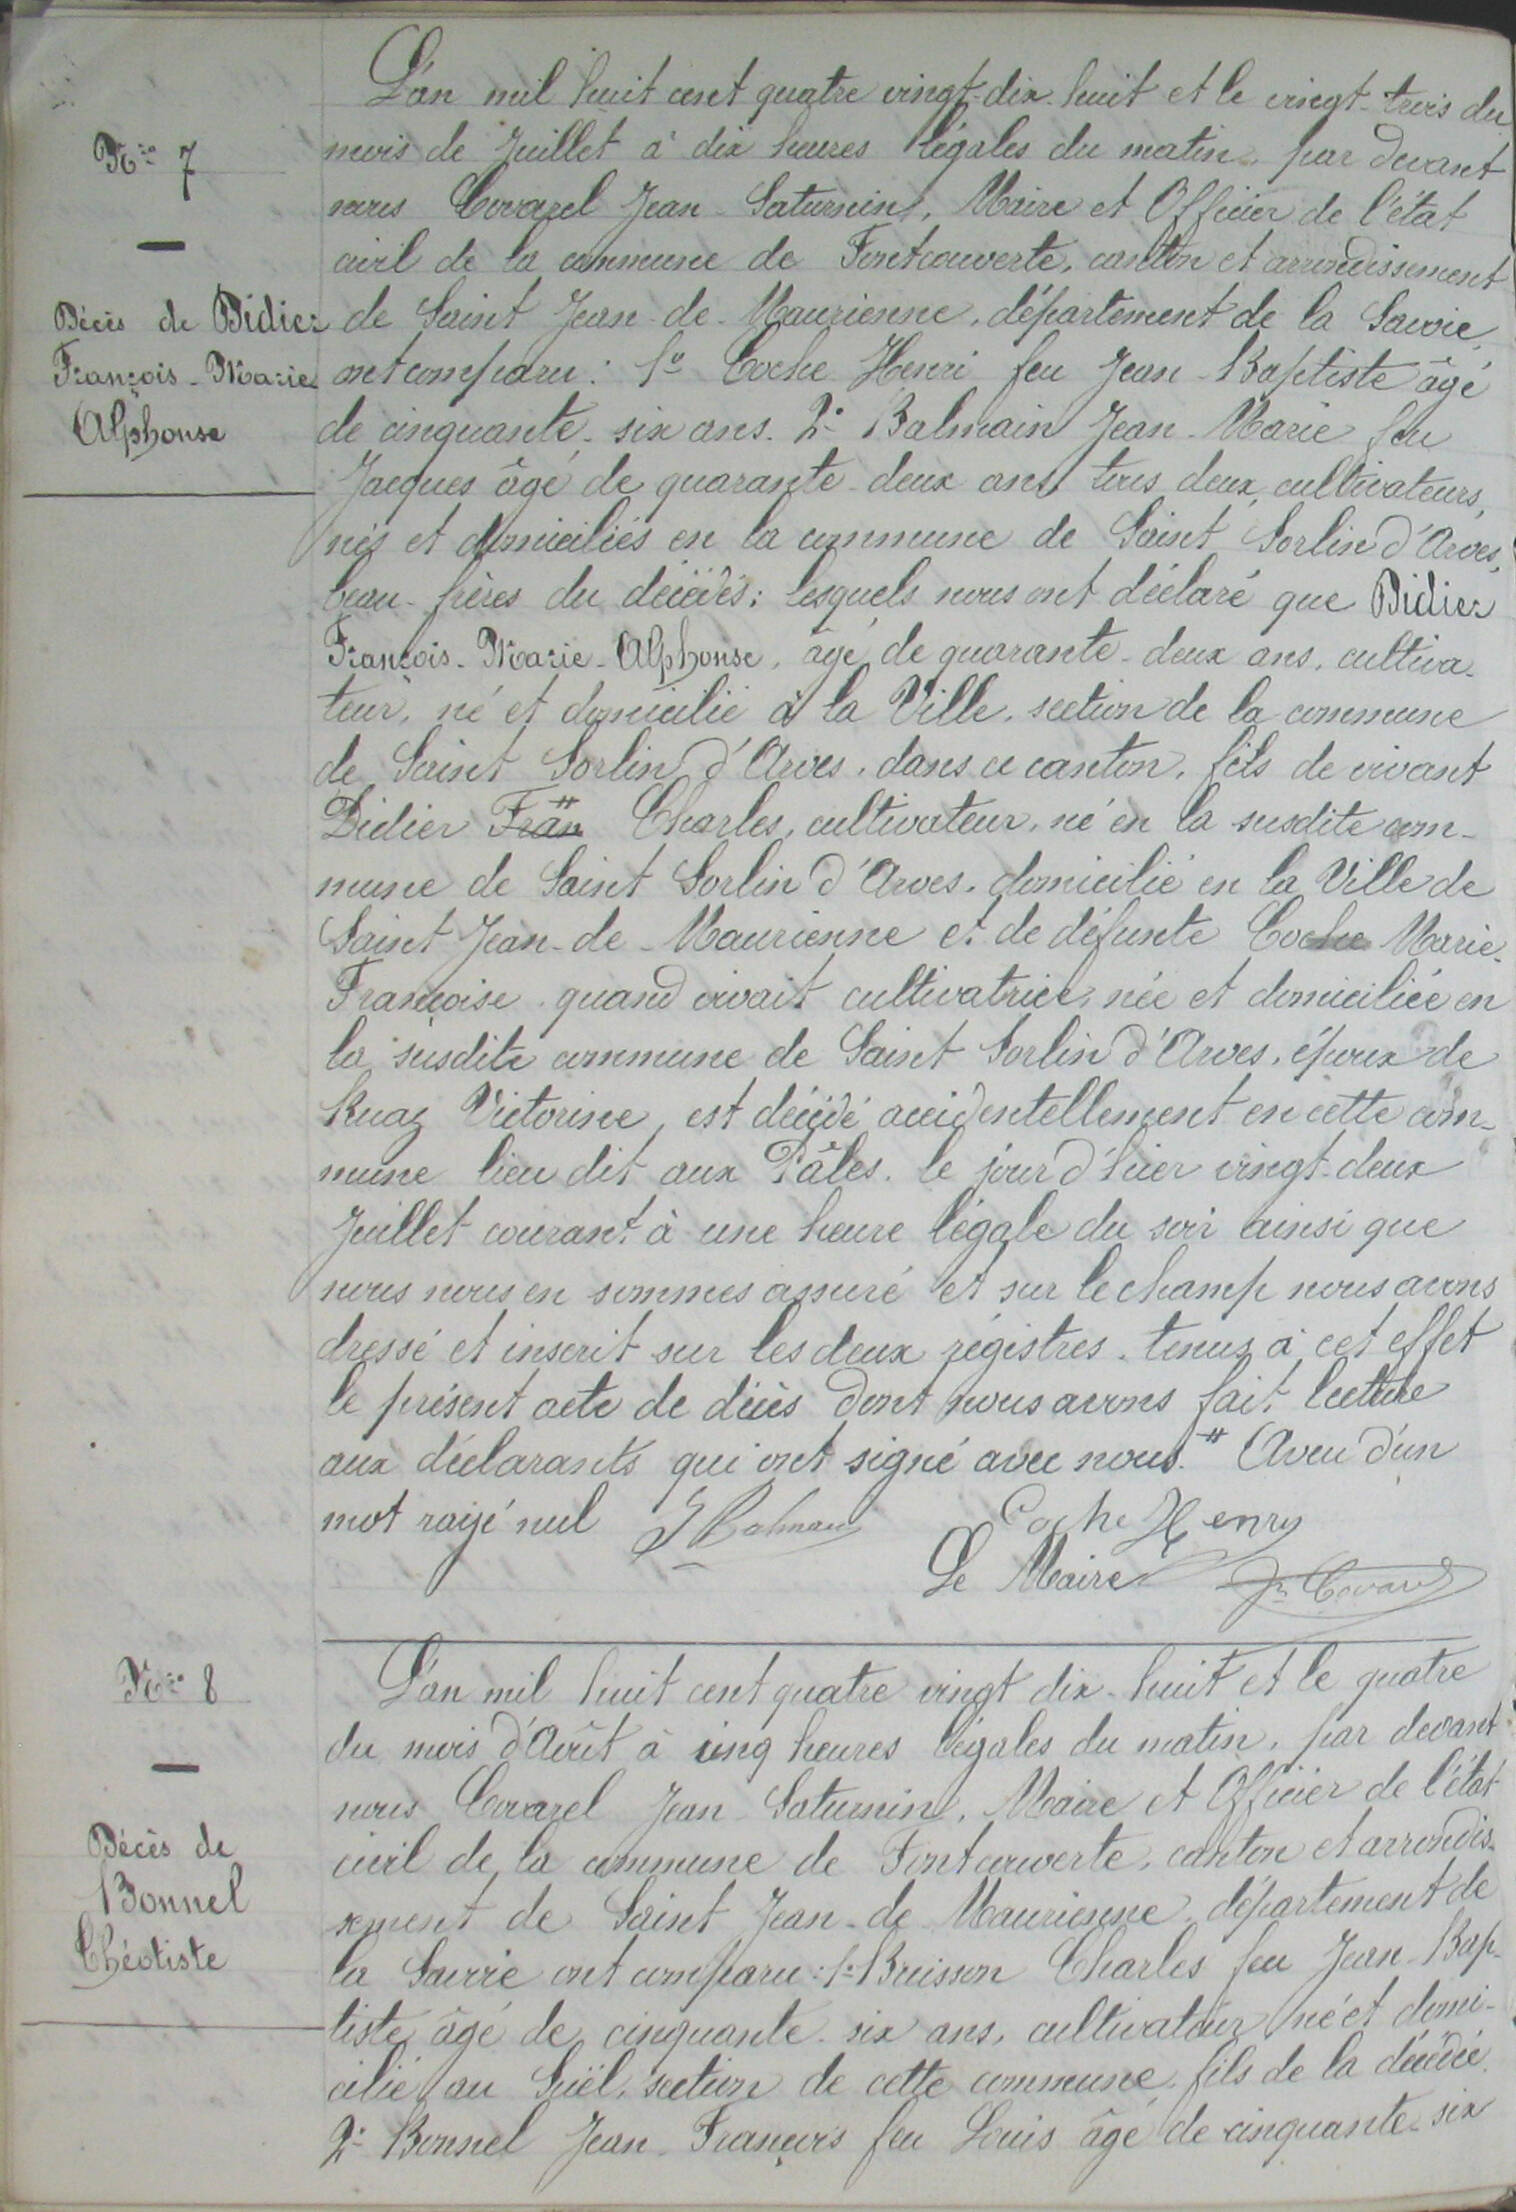 Nro 7
Décès de Didier
François-Marie
Alphonse
L'an mil huit cent quatre vingt-dix-huit et le vingt-trois du
mois de Juillet à dix heures légales du matin, par devant
nous Covarel Jean-Saturnin, Maire et Officier de l'état
civil de la commune de Fontcouverte, canton et arrondissement
de Saint Jean-de-Maurienne, département de la Savoie,
ont comparu: 1º Coche Henri feu Jean-Baptiste âgé
de cinquante-six ans. 2º Balmain Jean-Marie feu
Jacques âgé de quarante-deux ans tous deux cultivateurs,
nés et domiciliés en la commune de Saint Sorlin d'Arves,
beau-frères du décédés; lesquels nous ont déclaré que Didier
François-Marie-Alphonse, âgé de quarante-deux ans, cultiva-
teur, né et domicilié à la Ville, section de la commune
de Saint Sorlin d'Arves, dans ce canton, fils de vivant
Didier Fran Charles, cultivateur, né en la susdite com-
mune de Saint Sorlin d'Arves, domicilié en la Ville de
Saint Jean-de-Maurienne et de défunte Coche Marie-
Françoise quand vivait cultivatrice, née et domiciliée en
la susdite commune de Saint Sorlin d'Arves, époux de
Ruaz Victorine, est décédé accidentellement en cette com-
mune lieu dit aux Pâles, le jour d'hier vingt-deux
Juillet courant à une heure légale du soir ainsi que
nous nous en sommes assuré et sur le champ nous avons
dressé et inscrit sur les deux régistres tenus à cet effet
le présent acte de décès dont nous avons fait lecture
aux déclarants qui ont signé avec nous. # Aveu d'un
mot rayé nul J Balmain Coche Henry
Le Maire Jn Covarel
Nro 8
Décès de
Bonnel
Théotiste
L'an mil huit cent quatre vingt dix-huit et le quatre
du mois d'Août à cinq heures légales du matin, par devant
nous Covarel Jean-Saturnin, Maire et Officier de l'état
civil de la commune de Fontcouverte, canton et arrondis-
sement de Saint Jean-de-Maurienne, département de
la Savoie ont comparu: 1º Buisson Charles feu Jean-Bap-
tiste âgé de cinquante-six ans, cultivateur né et domi-
cilié au Suël, section de cette commune, fils de la décédée.
2º Bonnel Jean-François feu Louis âgé de cinquante-six